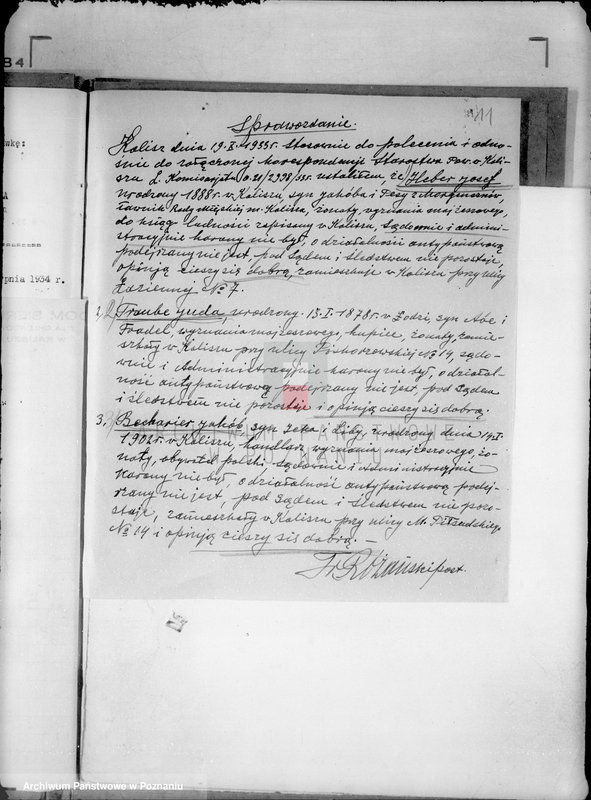 84
wkę:
A
rpnia 1934 r.
11
Sprawozdanie.
Kalisz dnia 19.X.1935r. Stosownie do polecenia i odno-
śnie do załączonej korespondencji Starostwa Pow. w Kali-
szu L. Komisarjatu 0.21/2938/35r. ustaliłem, że Heber Josef
urodzony 1888r. w Kaliszu, syn Jakóba i Fesy z
ławnik Rady Miejskiej m. Kalisza, żonaty, wyznania mojżeszowego,
do ksiąg ludności zapisany w Kaliszu, sądownie i admini-
stracyjnie karany nie był, o działalność antypaństwową
podejrzany nie jest, pod sądem i śledztwem nie pozostaje,
opinją cieszy się dobrą, zamieszkuje w Kaliszu przy ulicy
Łaziennej № 7.
2) Traube Juda, urodzony 15.I.1878r. w Łodzi, syn Abe i
Fradel, wyznania mojżeszowego, kupiec, żonaty, zamie-
szkały w Kaliszu przy ulicy № 14, sądo-
wnie i Administracyjnie karany nie był, o działal-
ność antypaństwową podejrzany nie jest, pod sądem
i śledztwem nie pozostaje i opinją cieszy się dobrą.
3) Beckarier Jakób, syn Icka i Liby, urodzony dnia
1902r. w Kaliszu, handlarz wyznania mojżeszowego, żo-
naty, obywatel polski, sądownie i Administracyjnie
karany nie był, o działalność antypaństwową podej-
rzany nie jest, pod sądem i śledztwem nie pozo-
staje, zamieszkały w Kaliszu przy ulicy M. Piłsudskiego
№ 14 i opinją cieszy się dobrą. —
Fr Różański post.
ARCHIWUM PAŃSTWOWE
W POZNANIU
Archiwum Państwowe w Poznaniu